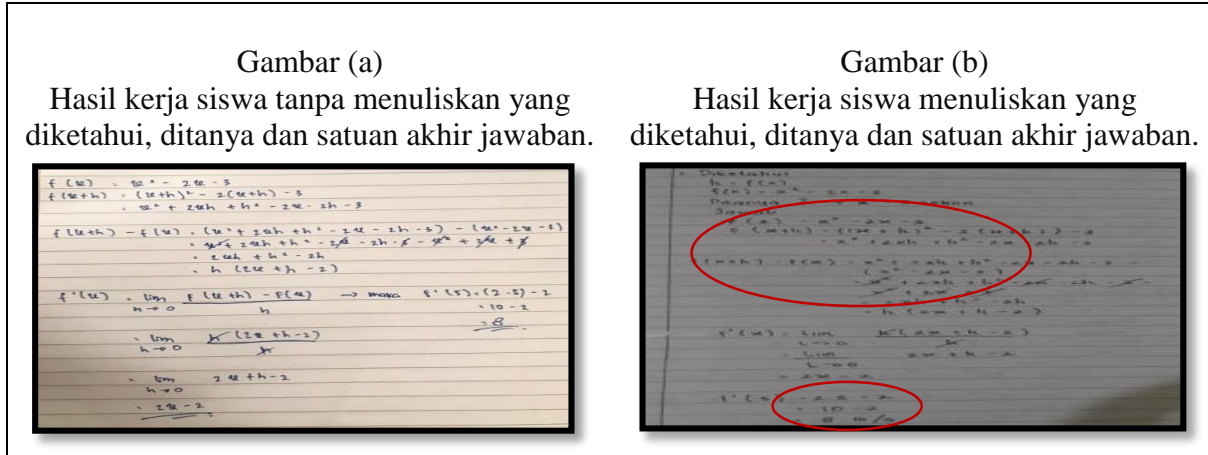 Gambar (a)
Hasil kerja siswa tanpa menuliskan yang
diketahui, ditanya dan satuan akhir jawaban.
f(x) = x² - 2x - 3
f(x+h) = (x+h)² - 2(x+h) - 3
= x² + 2xh + h² - 2x - 2h - 3
f(x+h) - f(x) = (x² + 2xh + h² - 2x - 2h - 3) - (x² - 2x - 3)
= x² + 2xh + h² - 2x - 2h - 3 - x² + 2x + 3
= 2xh + h² - 2h
= h (2x + h - 2)
f'(x) = lim h→0 f(x+h) - f(x) / h → maka f'(5) = (2.5) - 2
= 10 - 2
= 8
= lim h→0 h (2x + h - 2) / h
= lim h→0 2x + h - 2
= 2x - 2
Gambar (b)
Hasil kerja siswa menuliskan yang
diketahui, ditanya dan satuan akhir jawaban.
Diketahui
h = f(x)
Jawab
= h (2x + h - 2)
f'(x) = lim h→0 h (2x + h - 2) / h
= lim h→0 2x + h - 2
= 2x - 2
f'(5) = 2.5 - 2
= 10 - 2
= 8 m/s